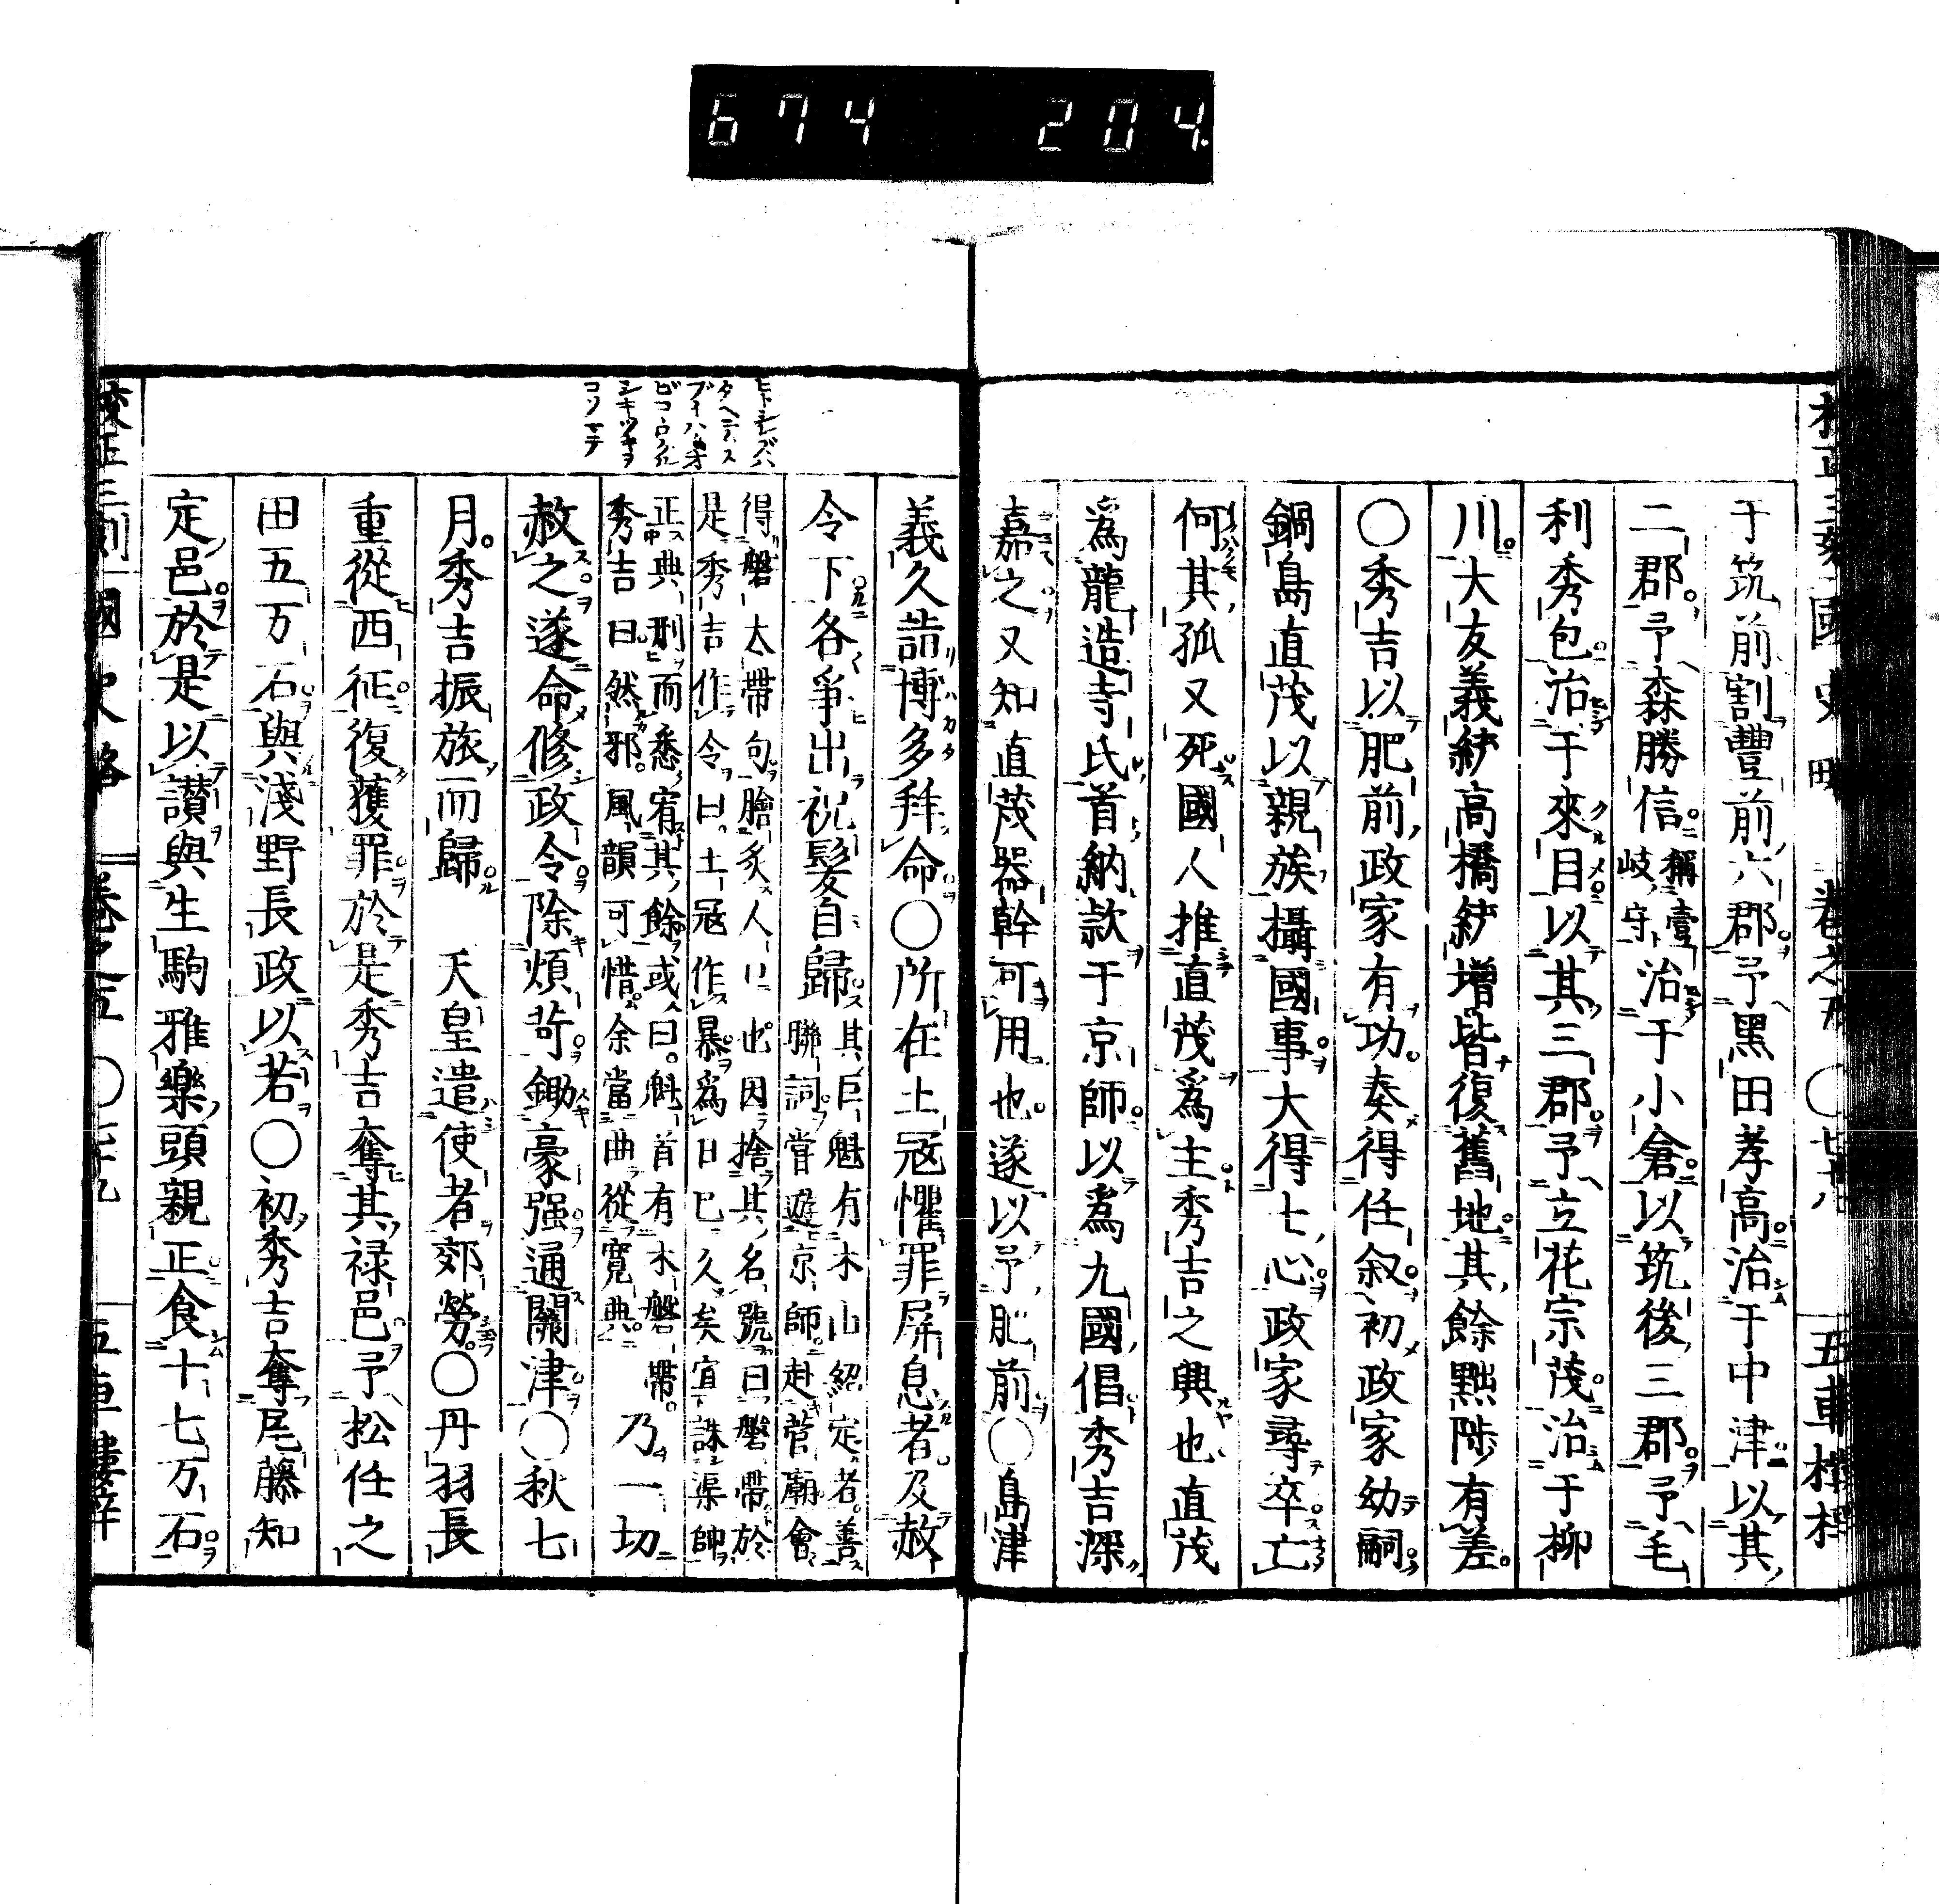 674 204
于筑前割豐前六郡予黑田孝高治于中津以其
二郡予森勝信稱壹岐守治于小倉以筑後三郡予毛
利秀包治于來目以其三郡予立花宗茂治于柳
川大友義統高橋統增皆復舊地其餘黜陟有差
〇秀吉以肥前政家有功奏得任叙初政家幼嗣
鍋島直茂以親族攝國事大得士心政家尋卒亡
何其孤又死國人推直茂爲主秀吉之興也直茂
爲龍造寺氏首納款于京師以爲九國倡秀吉深
嘉之又知直茂器幹可用也遂以予肥前〇島津
義久詣博多拜命〇所在土冦懼罪屏息者及赦
令下各爭出祝髮自歸其巨魁有木山紹定者善
聯詞嘗遊京師赴菅廟會
得磐太帶句膾炙人口也因捨其名號曰磐帶於
是秀吉作令曰土冦作暴爲日已久矣宜誅渠帥
正典刑而悉宥其餘或曰魁首有木磐帶
秀吉曰然邪風韻可惜余當曲從寬典乃一切
赦之遂命修政令除煩苛鋤豪强通關津〇秋七
月秀吉振旅而歸 天皇遣使者郊勞〇丹羽長
重從西征復獲罪於是秀吉奪其禄邑予松任之
田五万石與淺野長政以若〇初秀吉奪尾藤知
定邑於是以讃與生駒雅樂頭親正食十七万石
國史略 卷之五 〇 五車樓梓